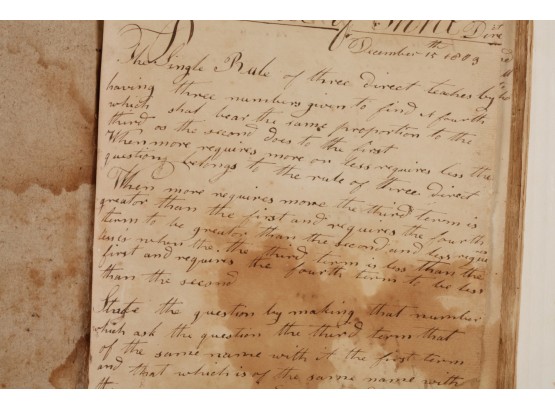 December 15th 1803
The Single Rule of three direct teaches by
having three numbers given to find a fourth
which shal bear the same proportion to the
third as the second does to the first
When more requires more or less requires less the
question belongs to the rule of three direct
When more requires more the third term is
greator than the first and requires the fourth
term to be greator than the second and less requir
less when the the third term is less than the
first and requires the fourth term to be less
than the second
State the question by making that number
which ask the question the third term that
of the same name with it the first term
and that which is of the same name with